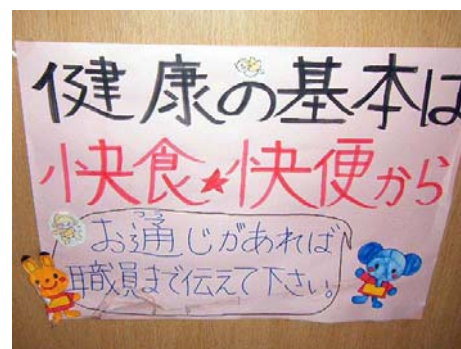 健康の基本は
快食★快便から
お通じがあれば
職員まで伝えて下さい。